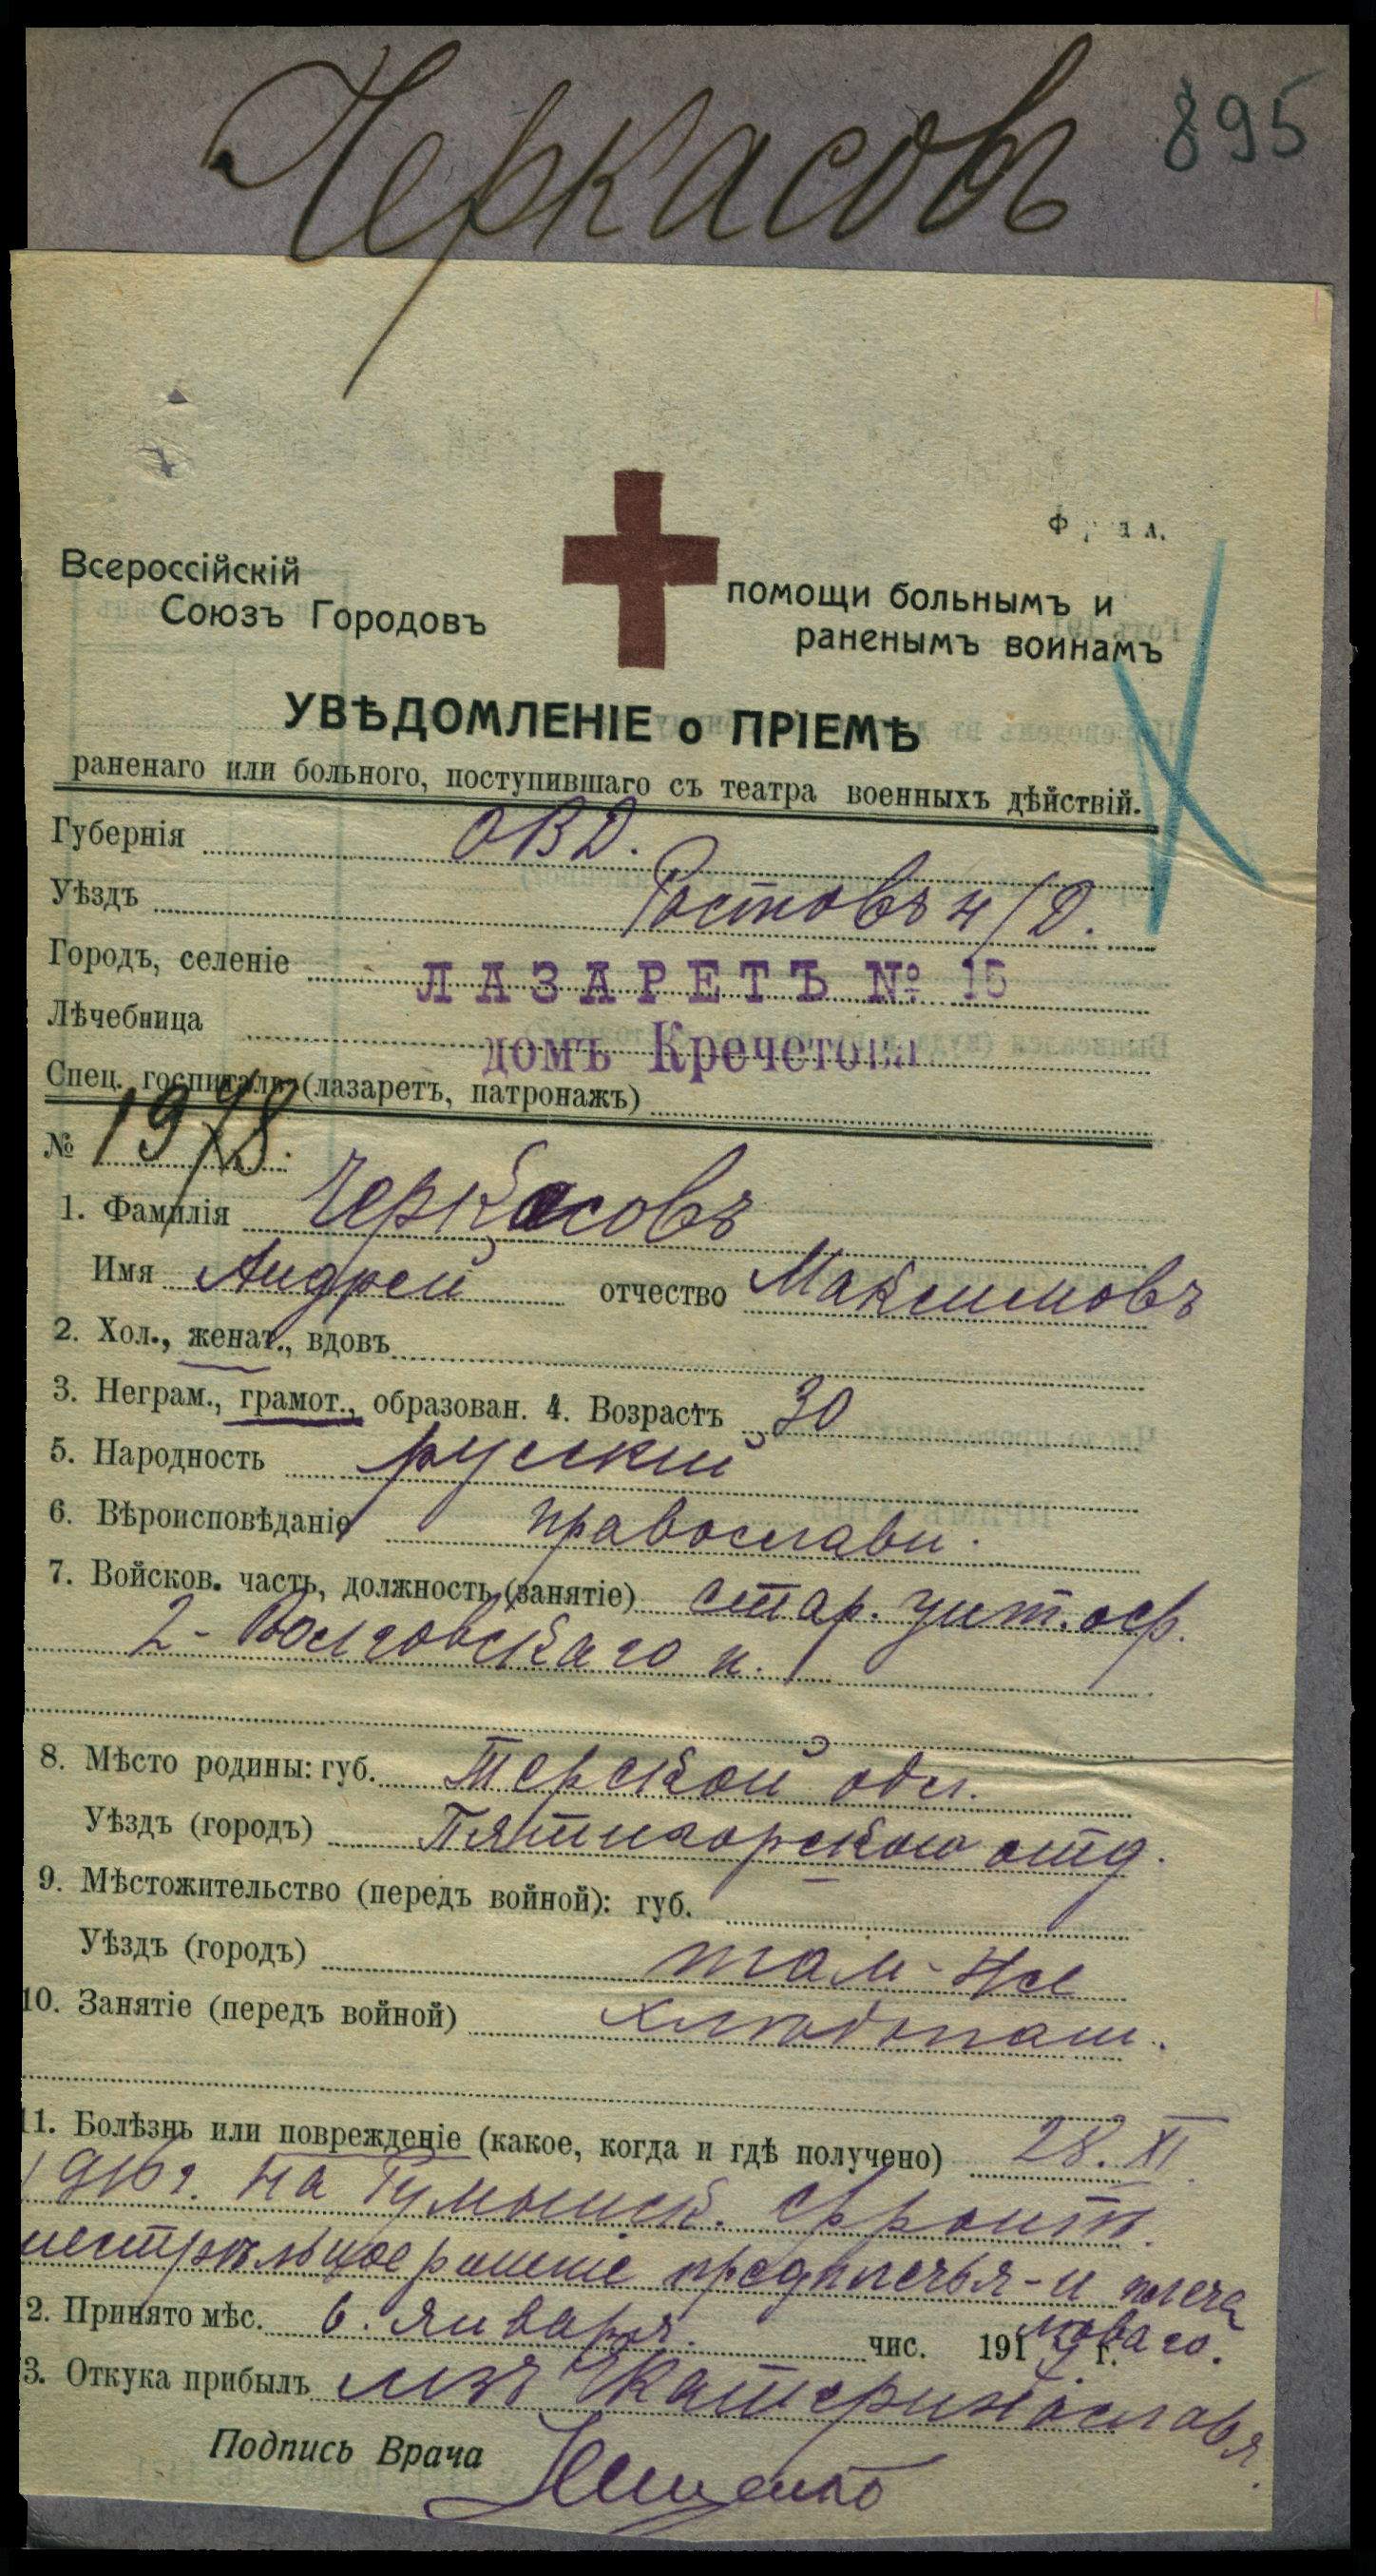 Черкасовъ
895
Всероссійскій
Союзъ Городовъ
помощи больнымъ и
раненымъ воинамъ
УВѢДОМЛЕНІЕ о ПРІЕМѢ
раненаго или больного, поступившаго съ театра военныхъ дѣйствій.
Губернія ОВД.
Уѣздъ Ростовъ н/Д.
Городъ, селеніе ЛАЗАРЕТЪ № 15
Лѣчебница домъ Кречетова
Спец. госпиталь (лазаретъ, патронажъ)
№
1. Фамилія Черкасовъ
Имя Андрей отчество Максимовъ
2. Хол., женат., вдовъ
3. Неграм., грамот., образован. 4. Возрастъ 30
5. Народность русскій
6. Вѣроисповѣданіе православн.
7. Войсков. часть, должность (занятіе) стар. унт. оф.
2-Волговскаго п.
8. Мѣсто родины: губ. Терской обл.
Уѣздъ (городъ) Пятигорскаго отд.
9. Мѣстожительство (передъ войной): губ.
Уѣздъ (городъ) там-же
10. Занятіе (передъ войной) хлѣбопаш.
11. Болѣзнь или поврежденіе (какое, когда и гдѣ получено) 28. XI.
1916 г. На Румынск. фронтѣ.
раненіе предплечья-и плеча
2. Принято мѣс. 6. января. чис. 1917 г.
3. Откука прибылъ изъ Екатеринославля.
Подпись Врача